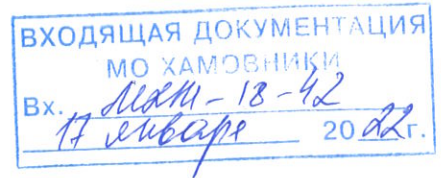 ВХОДЯЩАЯ ДОКУМЕНТАЦИЯ
МО ХАМОВНИКИ
Вх. МХМ-18-42
17 января 2022г.